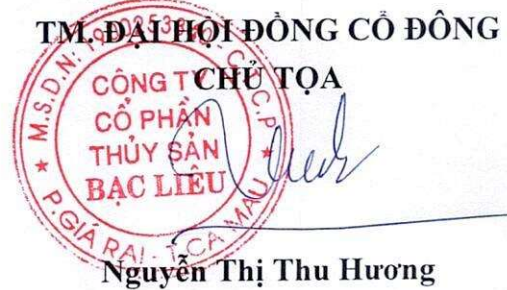 TM. ĐẠI HỘI ĐỒNG CỔ ĐÔNG
CHỦ TỌA
CÔNG TY
CỔ PHẦN
THỦY SẢN
BẠC LIÊU
P.GIÁ RAI - T.CÀ MAU
Nguyễn Thị Thu Hương